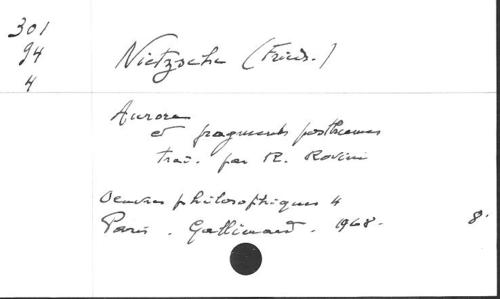 301
94
4
Nietzsche (Fried.)
Aurore
et fragments posthumes
trad. par R. Rovini
Oeuvres philosophiques 4
Paris. Gallimard. 1968. 8.